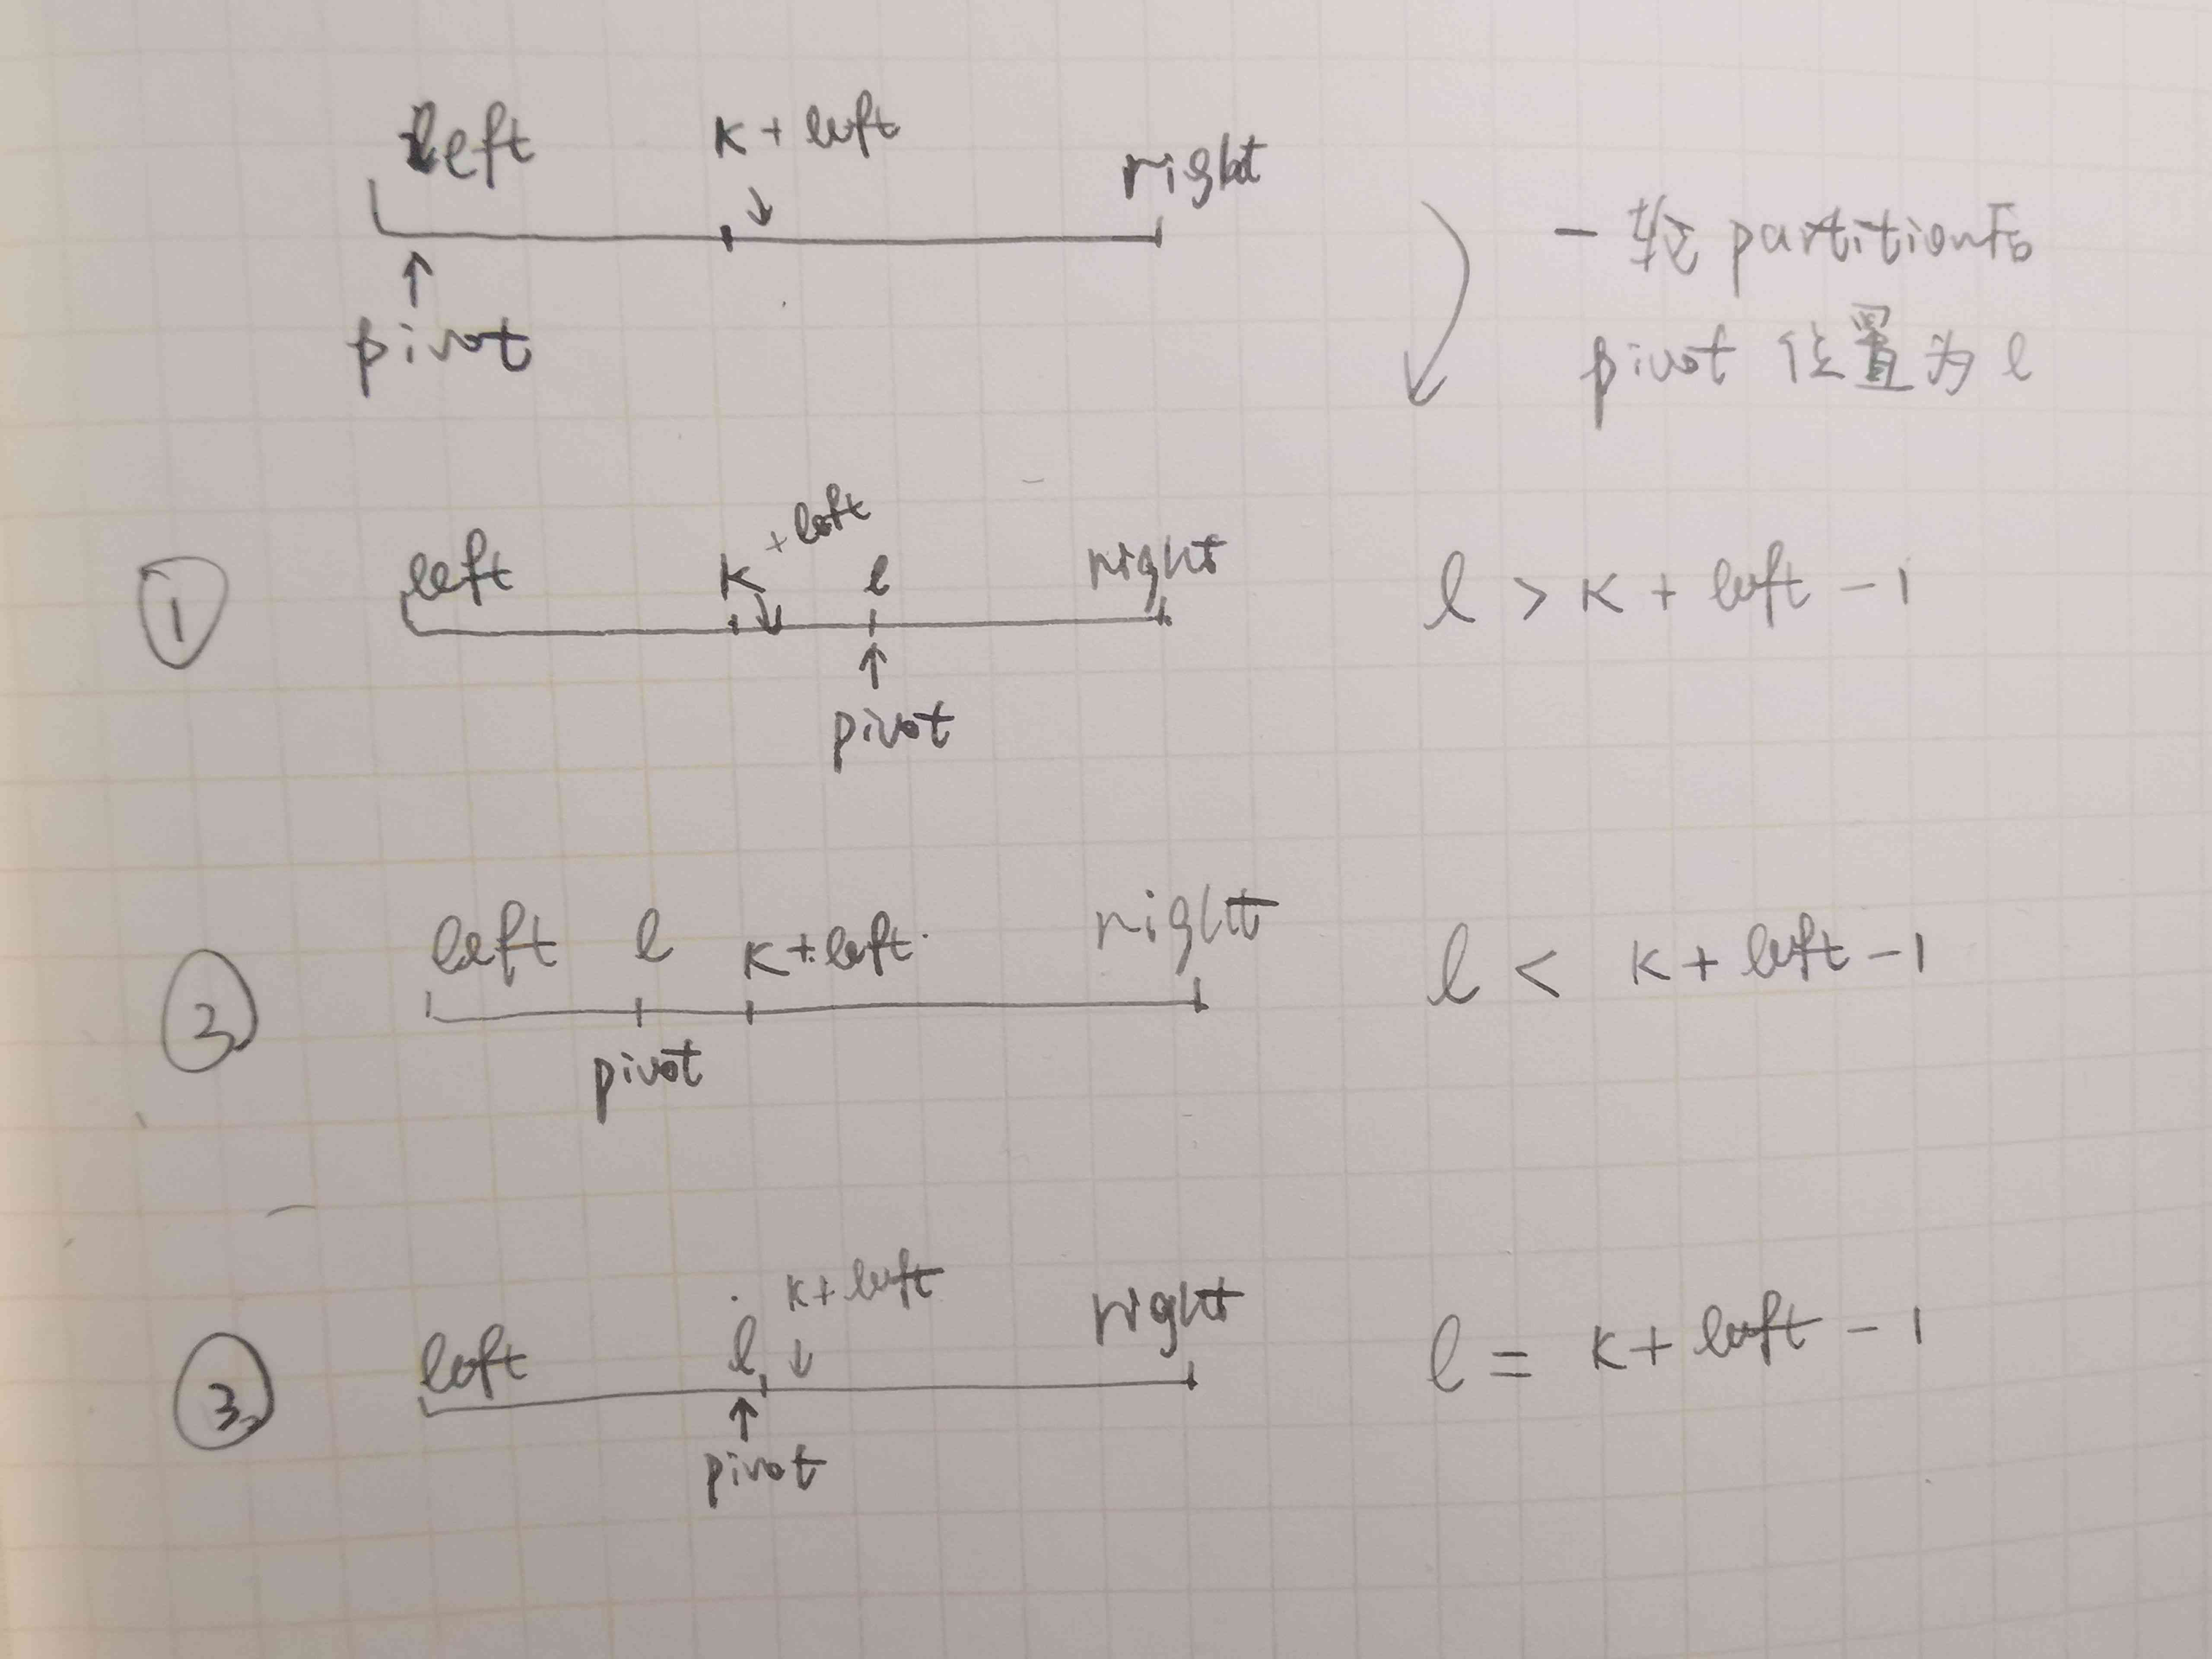 left K + left right
一轮 partition后
pivot
pivot 位置为 l
① left K + left l right l > K + left - 1
pivot
② left l K + left right l < K + left - 1
pivot
③ left l K + left right l = K + left - 1
pivot